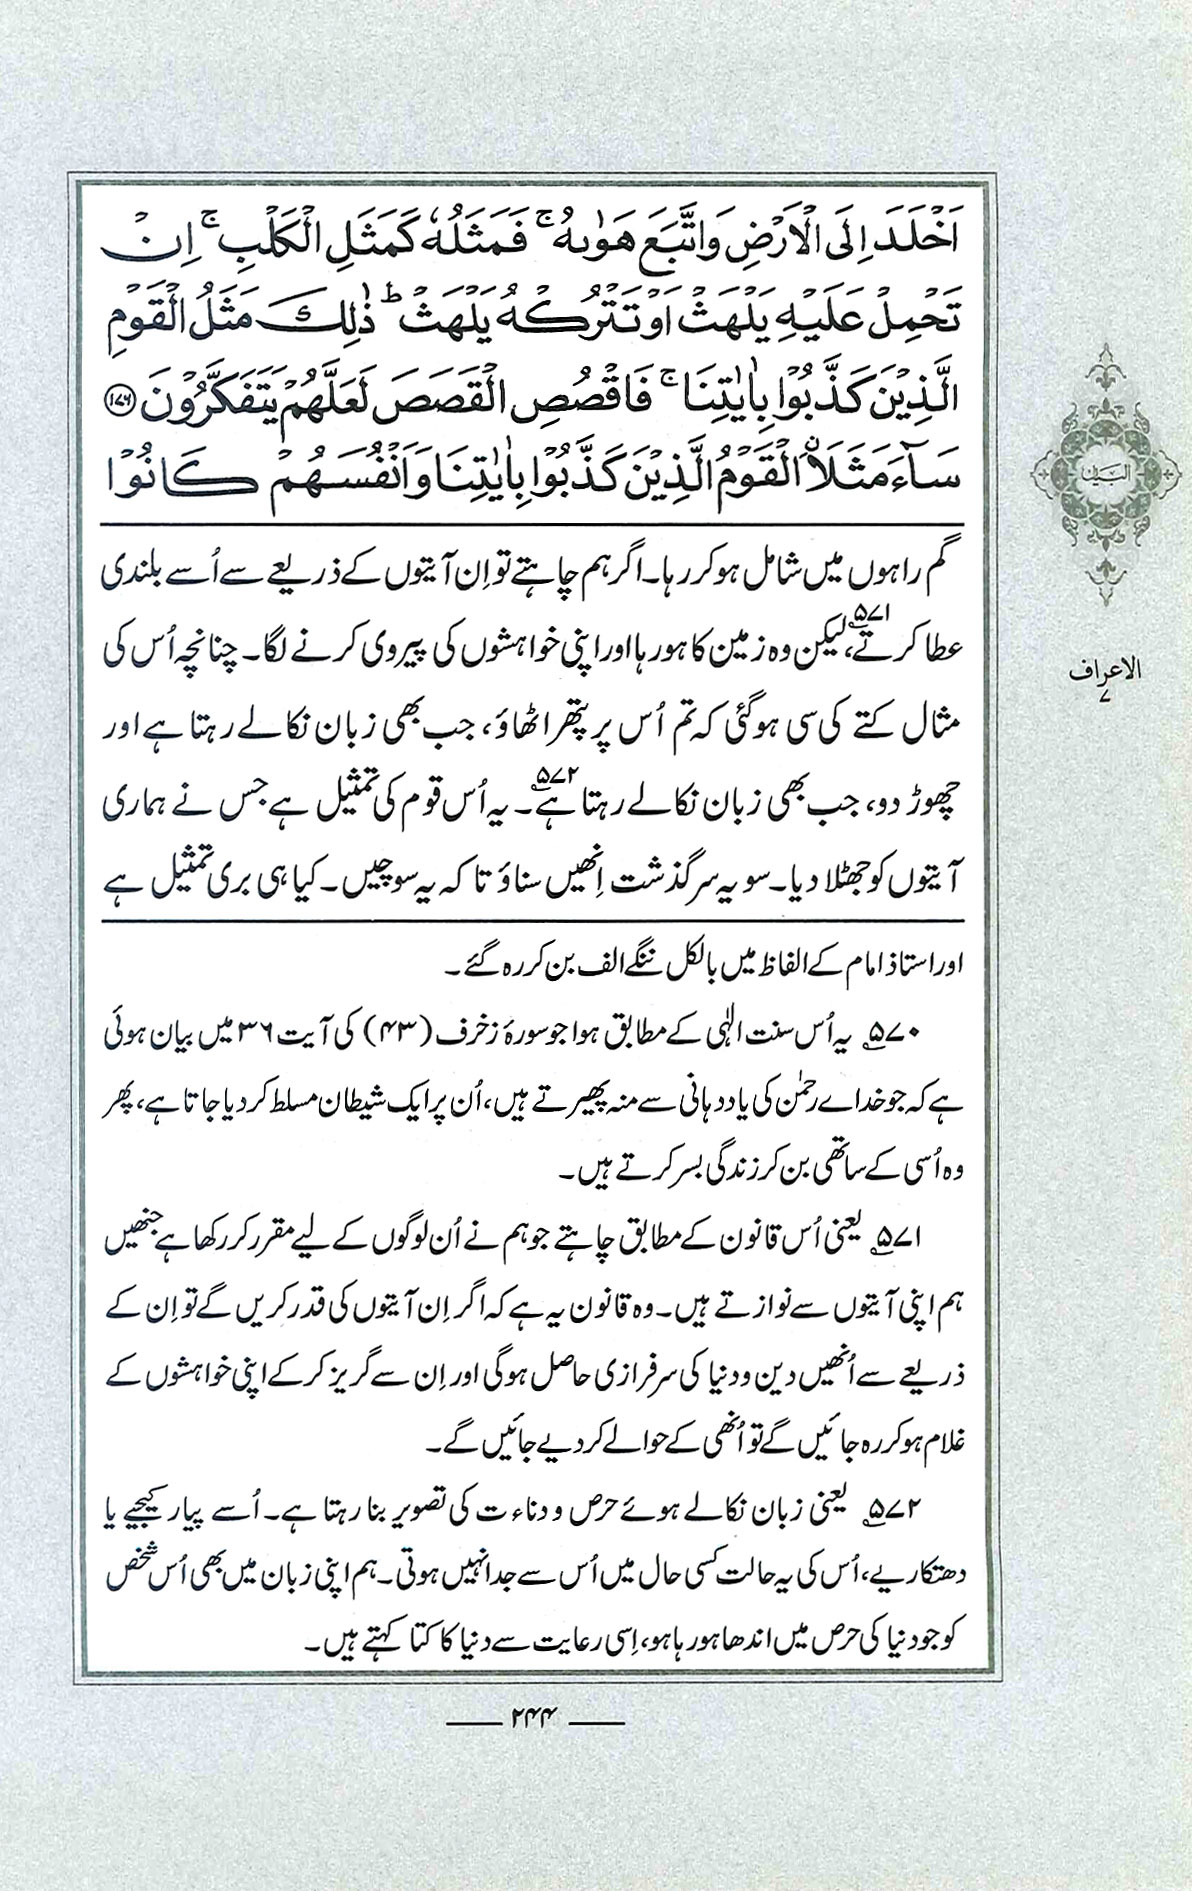 اَخْلَدَ اِلَى الْاَرْضِ وَاتَّبَعَ هَوٰىهُ ۚ فَمَثَلُهٗ كَمَثَلِ الْكَلْبِ ۚ اِنْ
تَحْمِلْ عَلَيْهِ يَلْهَثْ اَوْ تَتْرُكْهُ يَلْهَثْ ؕ ذٰلِكَ مَثَلُ الْقَوْمِ
الَّذِيْنَ كَذَّبُوْا بِاٰيٰتِنَا ۚ فَاقْصُصِ الْقَصَصَ لَعَلَّهُمْ يَتَفَكَّرُوْنَ ﴿۱۷۶﴾
سَآءَ مَثَلَا ۨالْقَوْمُ الَّذِيْنَ كَذَّبُوْا بِاٰيٰتِنَا وَاَنْفُسَهُمْ كَانُوْا
گم راہوں میں شامل ہو کر رہا۔ اگر ہم چاہتے تو اِن آیتوں کے ذریعے سے اُسے بلندی
عطا کرتے۵۷۱، لیکن وہ زمین کا ہو رہا اور اپنی خواہشوں کی پیروی کرنے لگا۔ چنانچہ اُس کی
مثال کتے کی سی ہو گئی کہ تم اُس پر پتھر اٹھاؤ، جب بھی زبان نکالے رہتا ہے اور
چھوڑ دو، جب بھی زبان نکالے رہتا ہے۵۷۲۔ یہ اُس قوم کی تمثیل ہے جس نے ہماری
آیتوں کو جھٹلا دیا۔ سو یہ سرگذشت اِنھیں سناؤ تاکہ یہ سوچیں۔ کیا ہی بری تمثیل ہے
اور استاذ امام کے الفاظ میں بالکل ننگے الف بن کر رہ گئے۔
۵۷۰ یہ اُس سنت الٰہی کے مطابق ہوا جو سورۂ زخرف (۴۳) کی آیت ۳۶ میں بیان ہوئی
ہے کہ جو خداے رحمٰن کی یاددہانی سے منہ پھیرتے ہیں، اُن پر ایک شیطان مسلط کر دیا جاتا ہے، پھر
وہ اُسی کے ساتھی بن کر زندگی بسر کرتے ہیں۔
۵۷۱ یعنی اُس قانون کے مطابق چاہتے جو ہم نے اُن لوگوں کے لیے مقرر کر رکھا ہے جنھیں
ہم اپنی آیتوں سے نوازتے ہیں۔ وہ قانون یہ ہے کہ اگر اِن آیتوں کی قدر کریں گے تو اِن کے
ذریعے سے اُنھیں دین و دنیا کی سرفرازی حاصل ہو گی اور اِن سے گریز کر کے اپنی خواہشوں کے
غلام ہو کر رہ جائیں گے تو اُنھی کے حوالے کر دیے جائیں گے۔
۵۷۲ یعنی زبان نکالے ہوئے حرص و دناءت کی تصویر بنا رہتا ہے۔ اُسے پیار کیجیے یا
دھتکاریے، اُس کی یہ حالت کسی حال میں اُس سے جدا نہیں ہوتی۔ ہم اپنی زبان میں بھی اُس شخص
کو جو دنیا کی حرص میں اندھا ہو رہا ہو، اِسی رعایت سے دنیا کا کتا کہتے ہیں۔
البیان
الاعراف
۷
۲۴۴